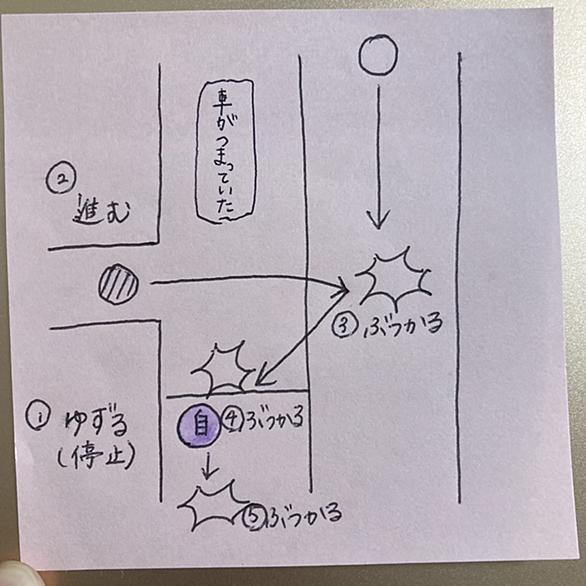 車がつまっていた
② 進む
③ ぶつかる
① ゆずる
(停止)
自 ④ ぶつかる
⑤ ぶつかる